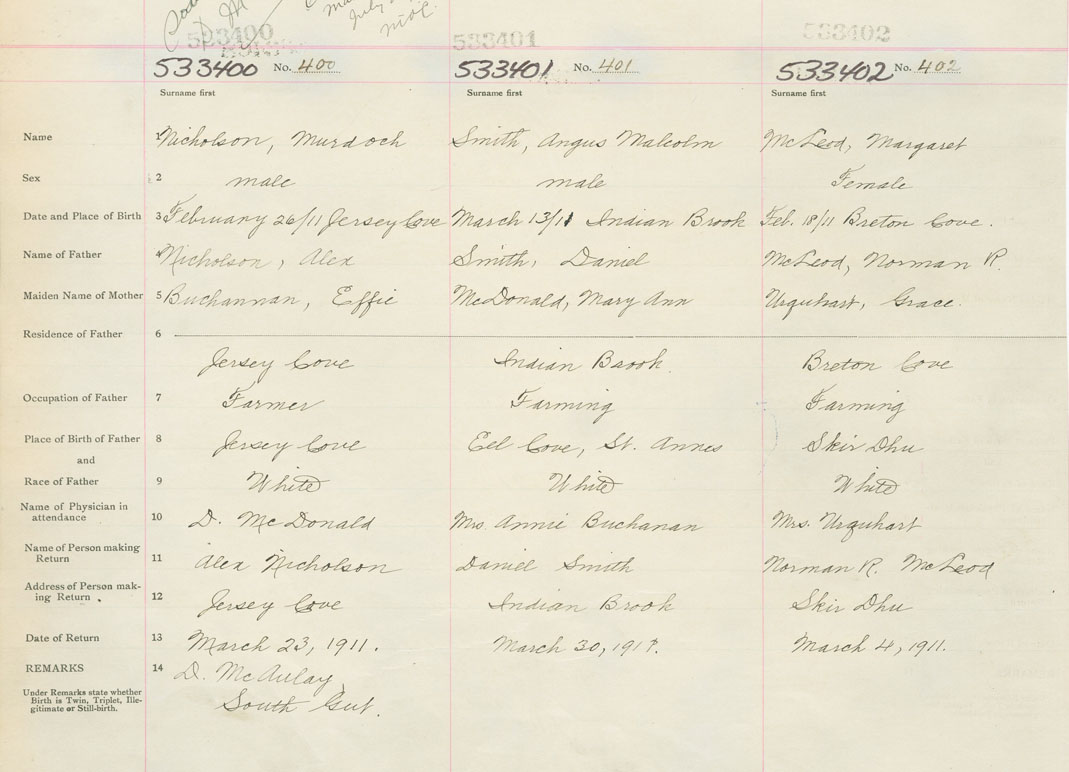 May
July
533400 533401 533402
533400 No. 400 533401 No. 401 533402 No. 402
Surname first Surname first Surname first
Name 1 Nicholson, Murdoch Smith, Angus Malcolm McLeod, Margaret
Sex 2 male male Female
Date and Place of Birth 3 February 26/11 Jersey Cove March 13/11 Indian Brook Feb. 18/11 Breton Cove.
Name of Father 4 Nicholson, Alex Smith, Daniel McLeod, Norman R.
Maiden Name of Mother 5 Buchannan, Effie McDonald, Mary Ann Urquhart, Grace.
Residence of Father 6
Jersey Cove Indian Brook. Breton Cove
Occupation of Father 7 Farmer Farming Farming
Place of Birth of Father 8 Jersey Cove Eel Cove, St. Annes Skir Dhu
and
Race of Father 9 White White White
Name of Physician in
attendance 10 D. McDonald Mrs. Annie Buchanan Mrs. Urquhart
Name of Person making
Return 11 Alex Nicholson Daniel Smith Norman R. McLeod
Address of Person mak-
ing Return 12 Jersey Cove Indian Brook Skir Dhu
Date of Return 13 March 23, 1911. March 30, March 4, 1911.
REMARKS 14 D. McAulay
Under Remarks state whether
Birth is Twin, Triplet, Ille-
gitimate or Still-birth.
South Gut.